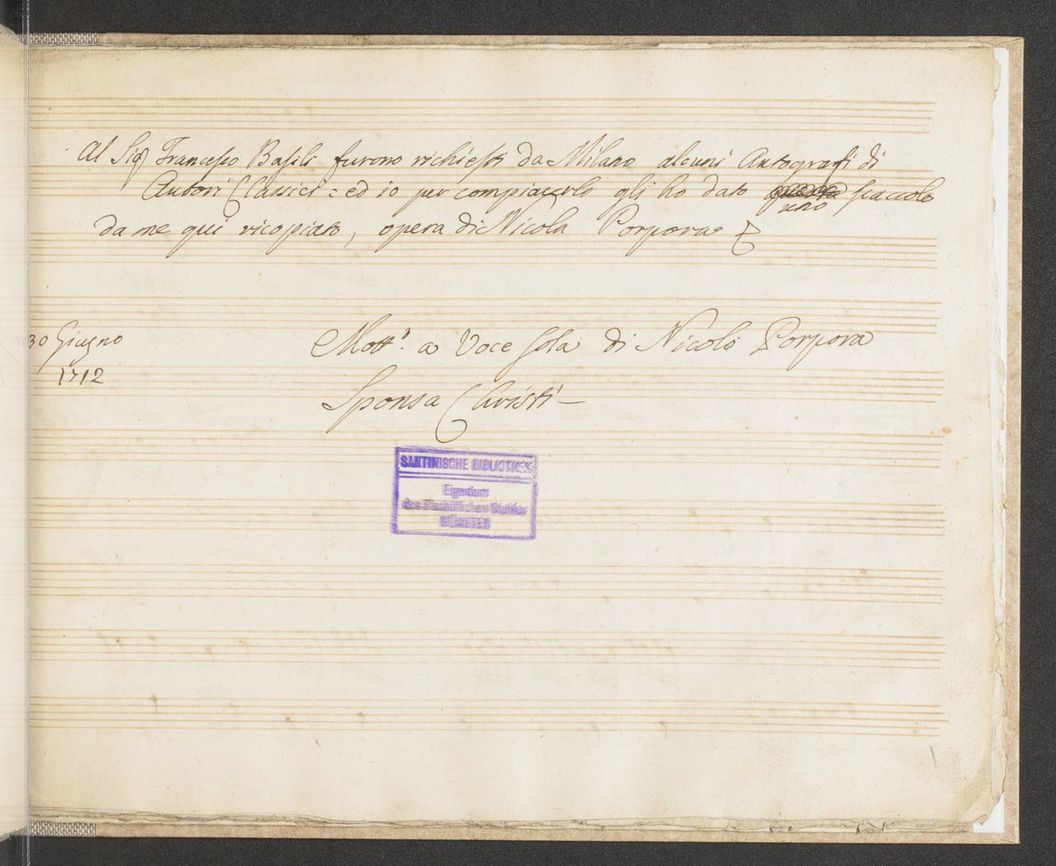 Al Sigr Francesco Basili furono richiesti da Milano alcuni Autografi di
Autori Classici: ed io per compiacerlo gli ho dato uno
da me qui ricopiato, opera di Nicola Porpora
30 Giugno
1712
Mott.º a Voce sola di Nicolò Porpora
Sponsa Christi—
SANTINISCHE BIBLIOTHEK
Eigentum
des Bischöflichen Stuhles
MÜNSTER